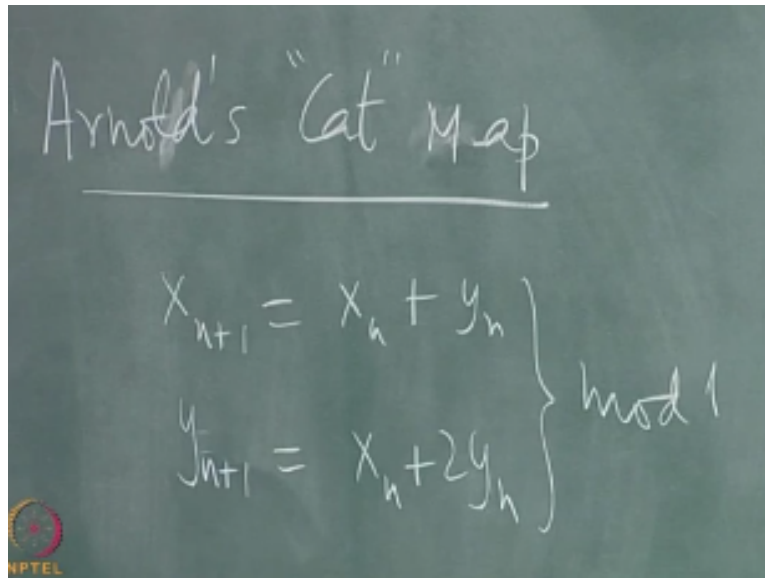 Arnold's "Cat" Map
x_{n+1} = x_n + y_n
y_{n+1} = x_n + 2y_n
} mod 1
NPTEL